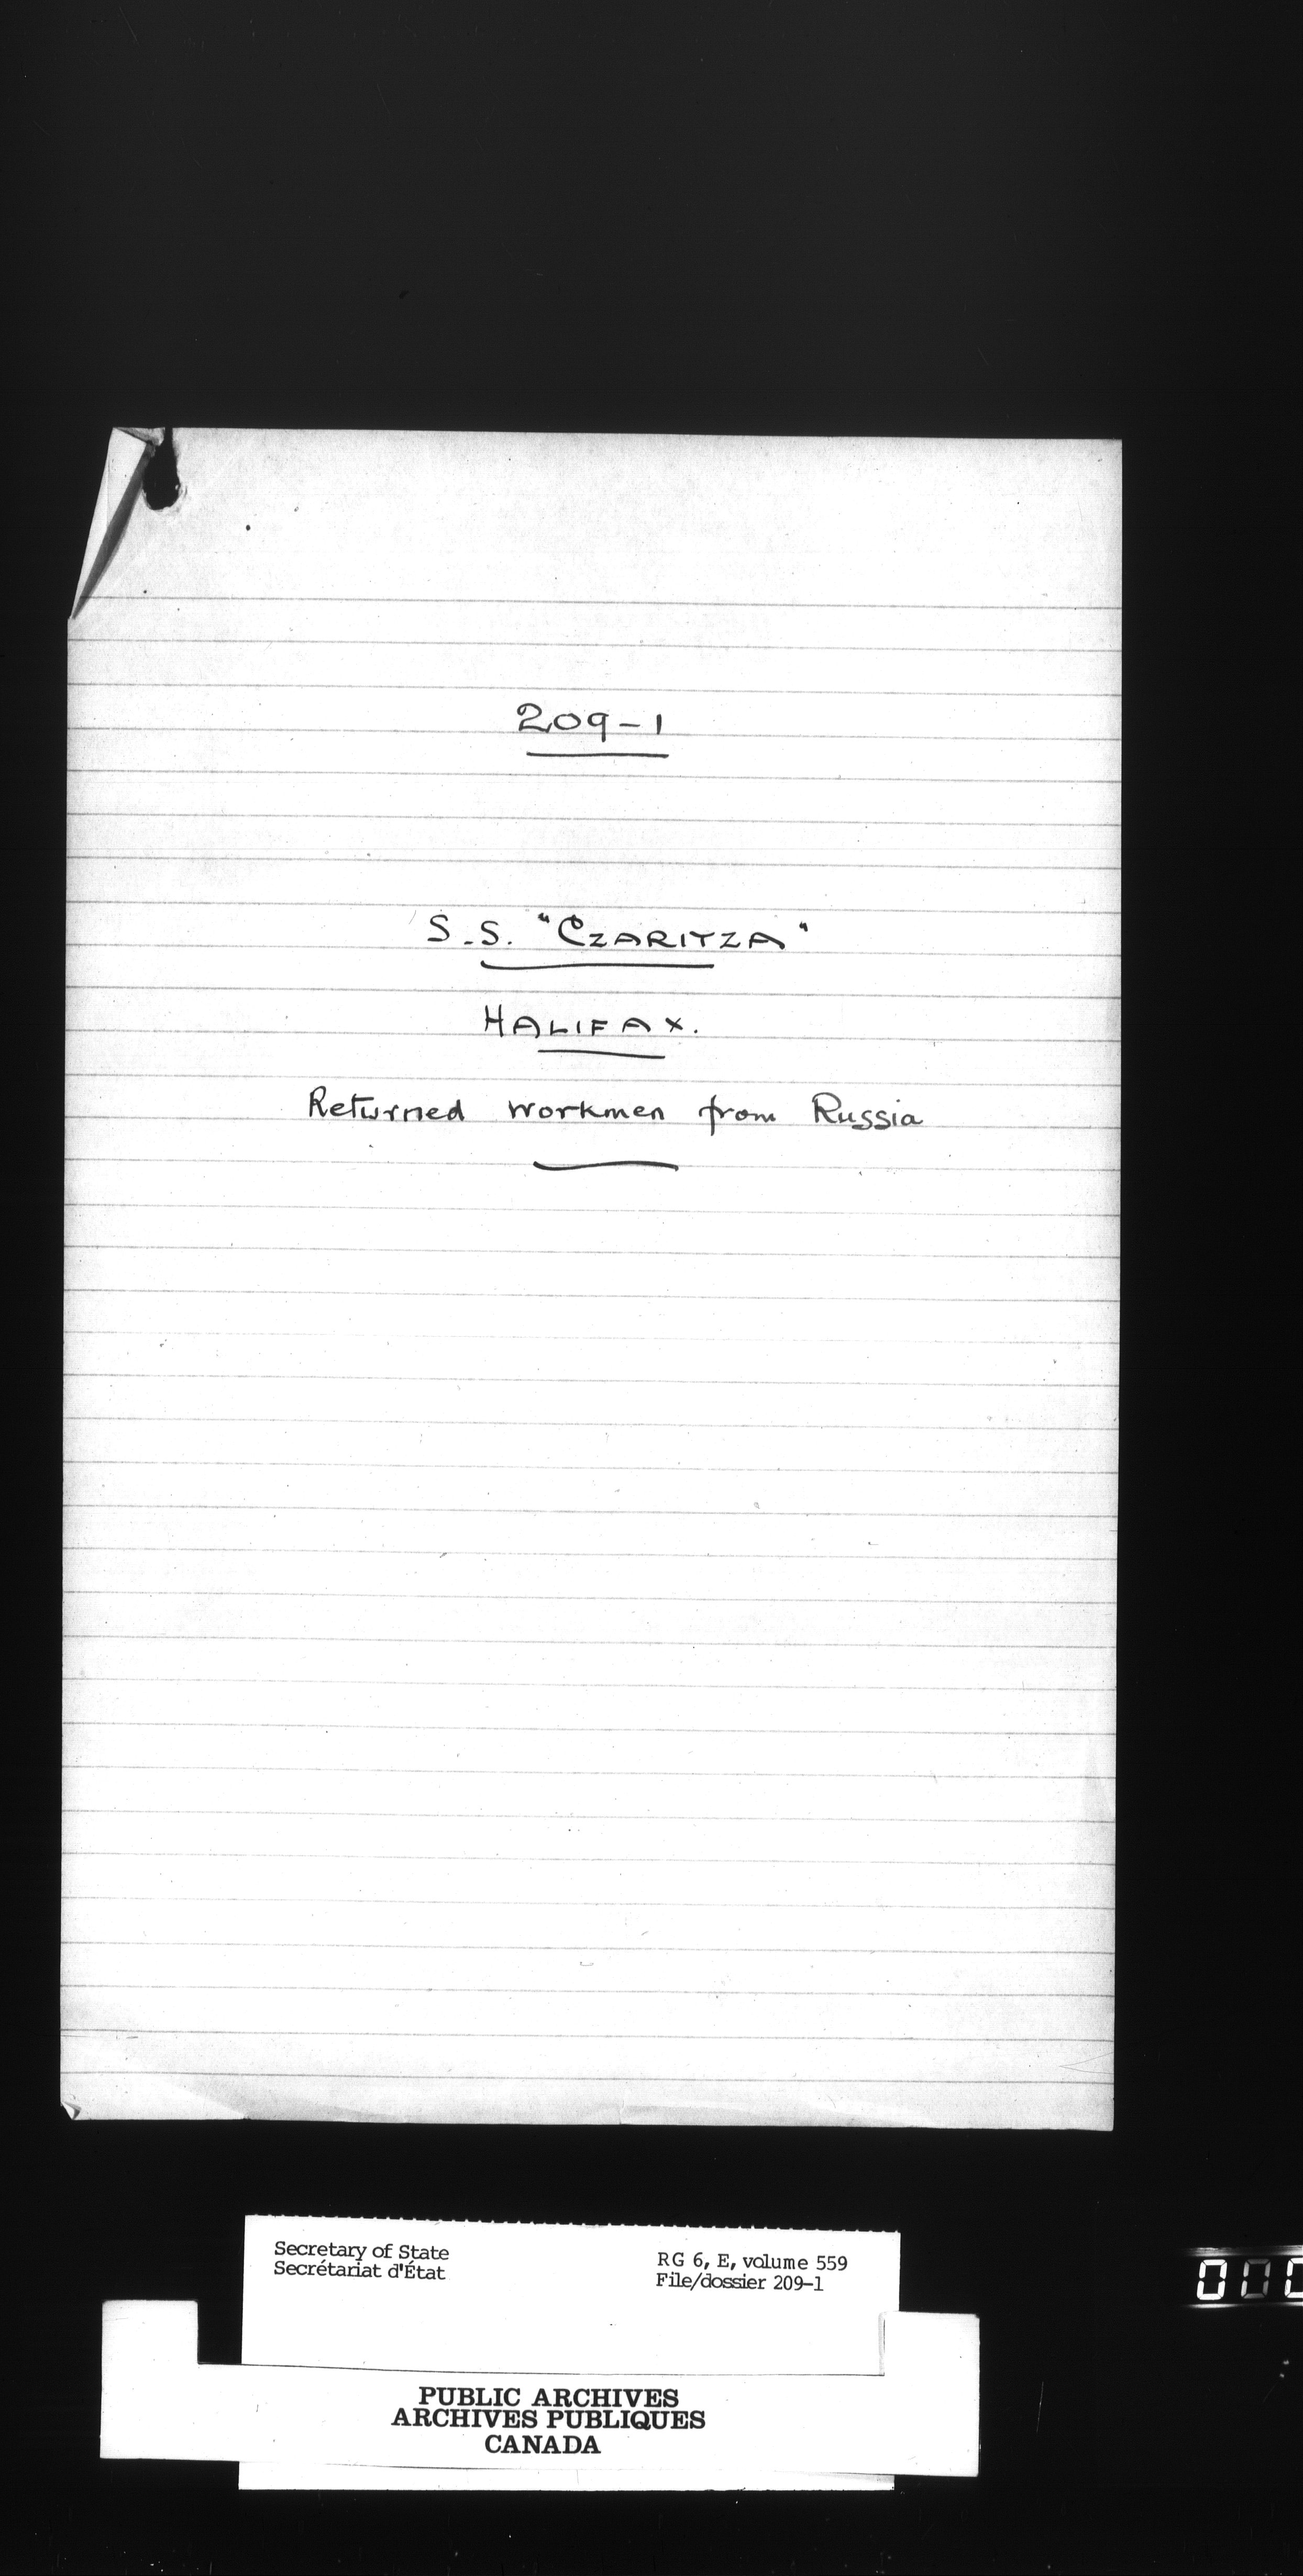 209-1
S.S. "CZARITZA"
HALIFAX.
Returned workmen from Russia
Secretary of State
Secrétariat d'État
RG 6, E, volume 559
File/dossier 209-1
000
PUBLIC ARCHIVES
ARCHIVES PUBLIQUES
CANADA